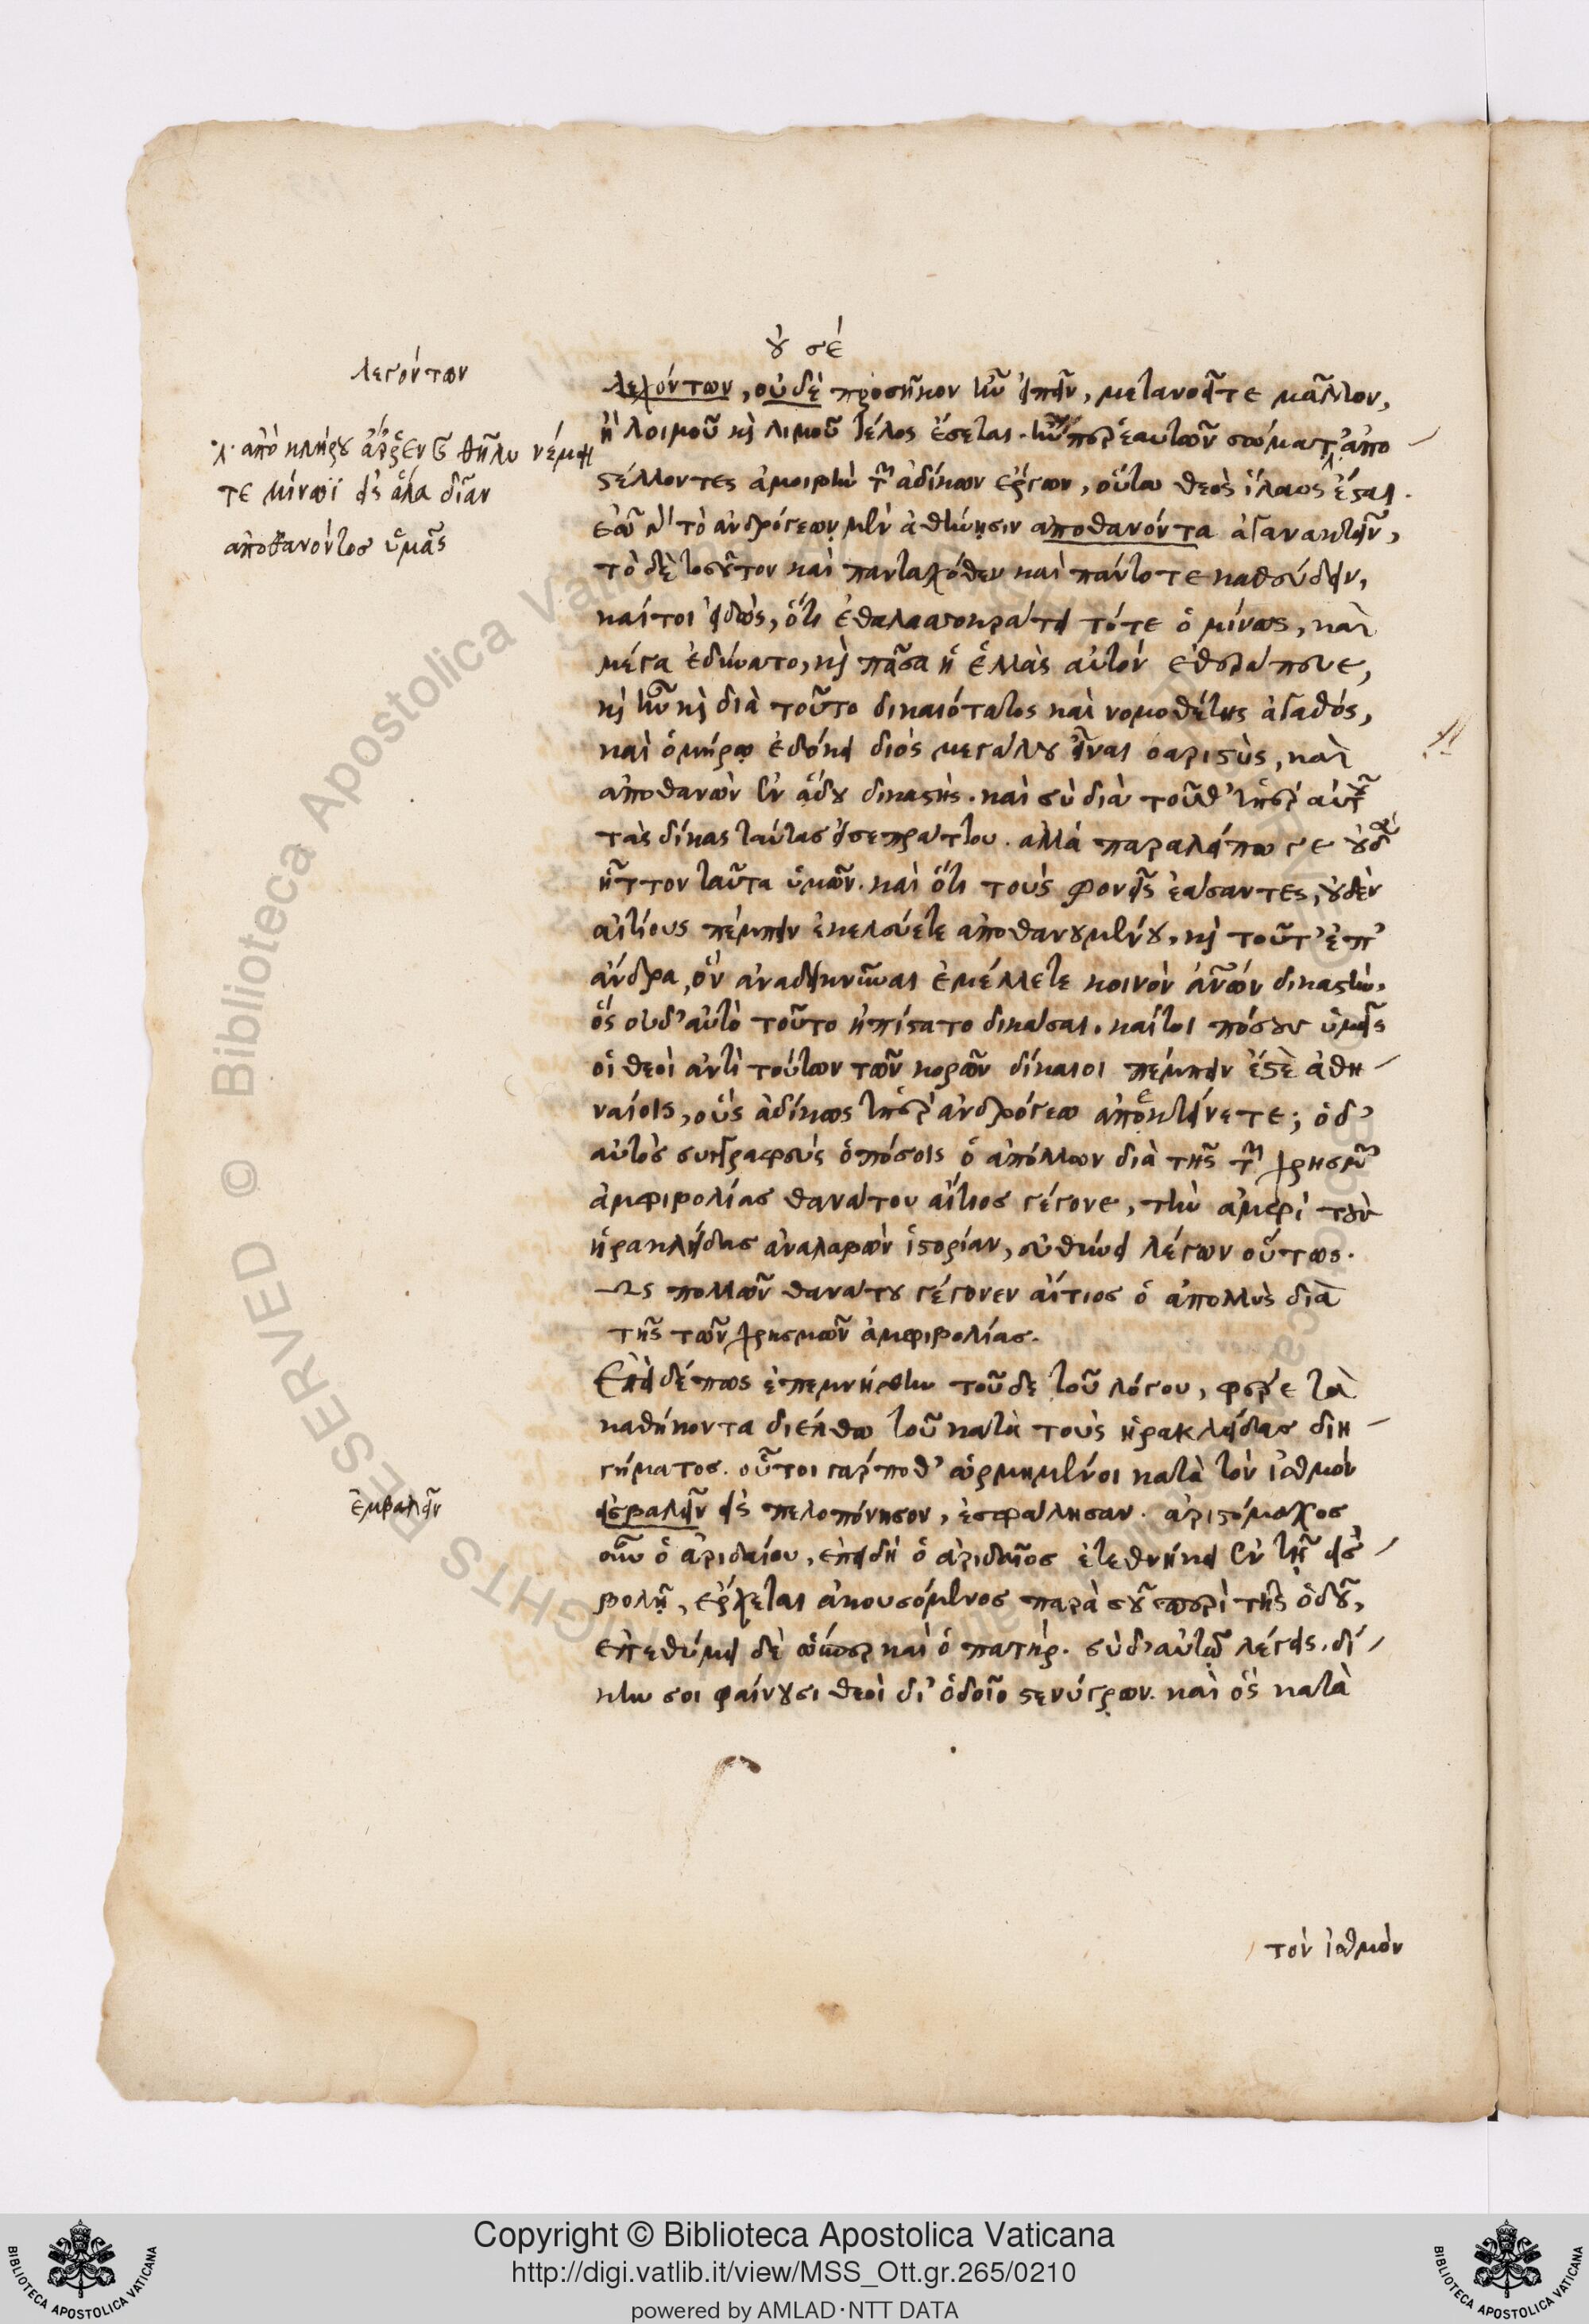 οὐ σέ
λεγόντων
λεχόντων, οὐδὲ προσῆκον ἦν εἰπεῖν, μετανοεῖτε μᾶλλον,
ἢ λοιμοῦ καὶ λιμοῦ τέλος ἔσεται. ἑαυτῶν σώματ' ἀπο
στέλλοντες ἀμοιβὴν τῶν ἀδίκων ἔργων, οὕτω θεὸς ἵλαος ἔσται.
λ. ἀπὸ κλήρου ἄρσεν καὶ θῆλυ νέμειν
τε μίνωϊ εἰς ἅλα δῖαν
ἀποθανόντος ὑμᾶς
ἐῶ τὸ ἀνδρόγεων μὲν ἀθήνησιν ἀποθανόντα ἀγανακτεῖν,
τὸ δὲ τοσοῦτον καὶ πανταχόθεν καὶ πάντοτε καθεύδειν,
καίτοι εἰδώς, ὅτι ἐθαλασσοκράτει τότε ὁ μίνως, καὶ
μέγα ἐδύνατο, καὶ πᾶσα ἡ ἑλλὰς αὐτὸν ἐθεράπευε,
καὶ ἦν καὶ διὰ τοῦτο δικαιότατος καὶ νομοθέτης ἀγαθός,
καὶ ὁμήρῳ ἐδόκει διὸς μεγάλου εἶναι ὀαριστὺς, καὶ
ἀποθανὼν ἐν ᾅδου δικαστής. καὶ σὺ διὰ τοῦθ' ὑπὲρ αὐτοῦ
τὰς δίκας ταύτας εἰσεπράττου. ἀλλὰ παραλείπω γε οὐδὲν
ἧττον ταῦτα ὑμῶν. καὶ ὅτι τοὺς φονεῖς ἐάσαντες, οὐδὲν
αἰτίους πέμπειν ἐκελεύετε ἀποθανουμένους, καὶ τοῦτ' ἐπ'
ἄνδρα, ὃν ἀναδεικνύναι ἐμέλλετε κοινὸν ἀνθρώπων δικαστήν,
ὃς οὐδ' αὐτὸ τοῦτο ἠπίστατο δικάσαι. καίτοι πόσους ὑμεῖς
οἱ θεοὶ ἀντὶ τούτων τῶν κορῶν δίκαιοι πέμπειν ἐστὲ ἀθη
ναίοις, οὓς ἀδίκως ὑπὲρ ἀνδρόγεω ἀπεκτείνετε; ὁ δ'
αὐτὸς συγγραφεὺς ὁπόσοις ὁ ἀπόλλων διὰ τῆς τῶν χρησμῶν
ἀμφιβολίας θανάτου αἴτιος γέγονε, τὴν ἀμφὶ τοὺς
ἡρακλείδας ἀναλαβὼν ἱστορίαν, εὐθύνει λέγων οὕτως.
Ὡς πολλῶν θανάτου γέγονεν αἴτιος ὁ ἀπόλλων διὰ
τῆς τῶν χρησμῶν ἀμφιβολίας.
Ἐπεὶ δέ πως ἐπεμνήσθην τοῦδε τοῦ λόγου, φέρε τὰ
καθήκοντα διέλθω τοῦ κατὰ τοὺς ἡρακλείδας διη
γήματος. οὗτοι γάρ ποθ' ὡρμημένοι κατὰ τὸν ἰσθμὸν
ἐμβαλεῖν
εἰσβαλεῖν εἰς πελοπόνησον, ἐσφάλησαν. ἀριστόμαχος
οὖν ὁ ἀριδαίου, ἐπειδὴ ὁ ἀριδαῖος ἐτεθνήκει ἐν τῇ εἰσ
βολῇ, ἔρχεται ἀκουσόμενος παρὰ σοῦ περὶ τῆς ὁδοῦ,
ἐπεθύμει δὲ ὥσπερ καὶ ὁ πατήρ. σὺ δ' αὐτῷ λέγεις. νί
κην σοι φαίνουσι θεοὶ δι' ὁδοῖο στενύγρων. καὶ ὃς κατὰ
τὸν ἰσθμὸν
Copyright © Biblioteca Apostolica Vaticana
http://digi.vatlib.it/view/MSS_Ott.gr.265/0210
powered by AMLAD·NTT DATA
BIBLIOTECA APOSTOLICA VATICANA
BIBLIOTECA APOSTOLICA VATICANA